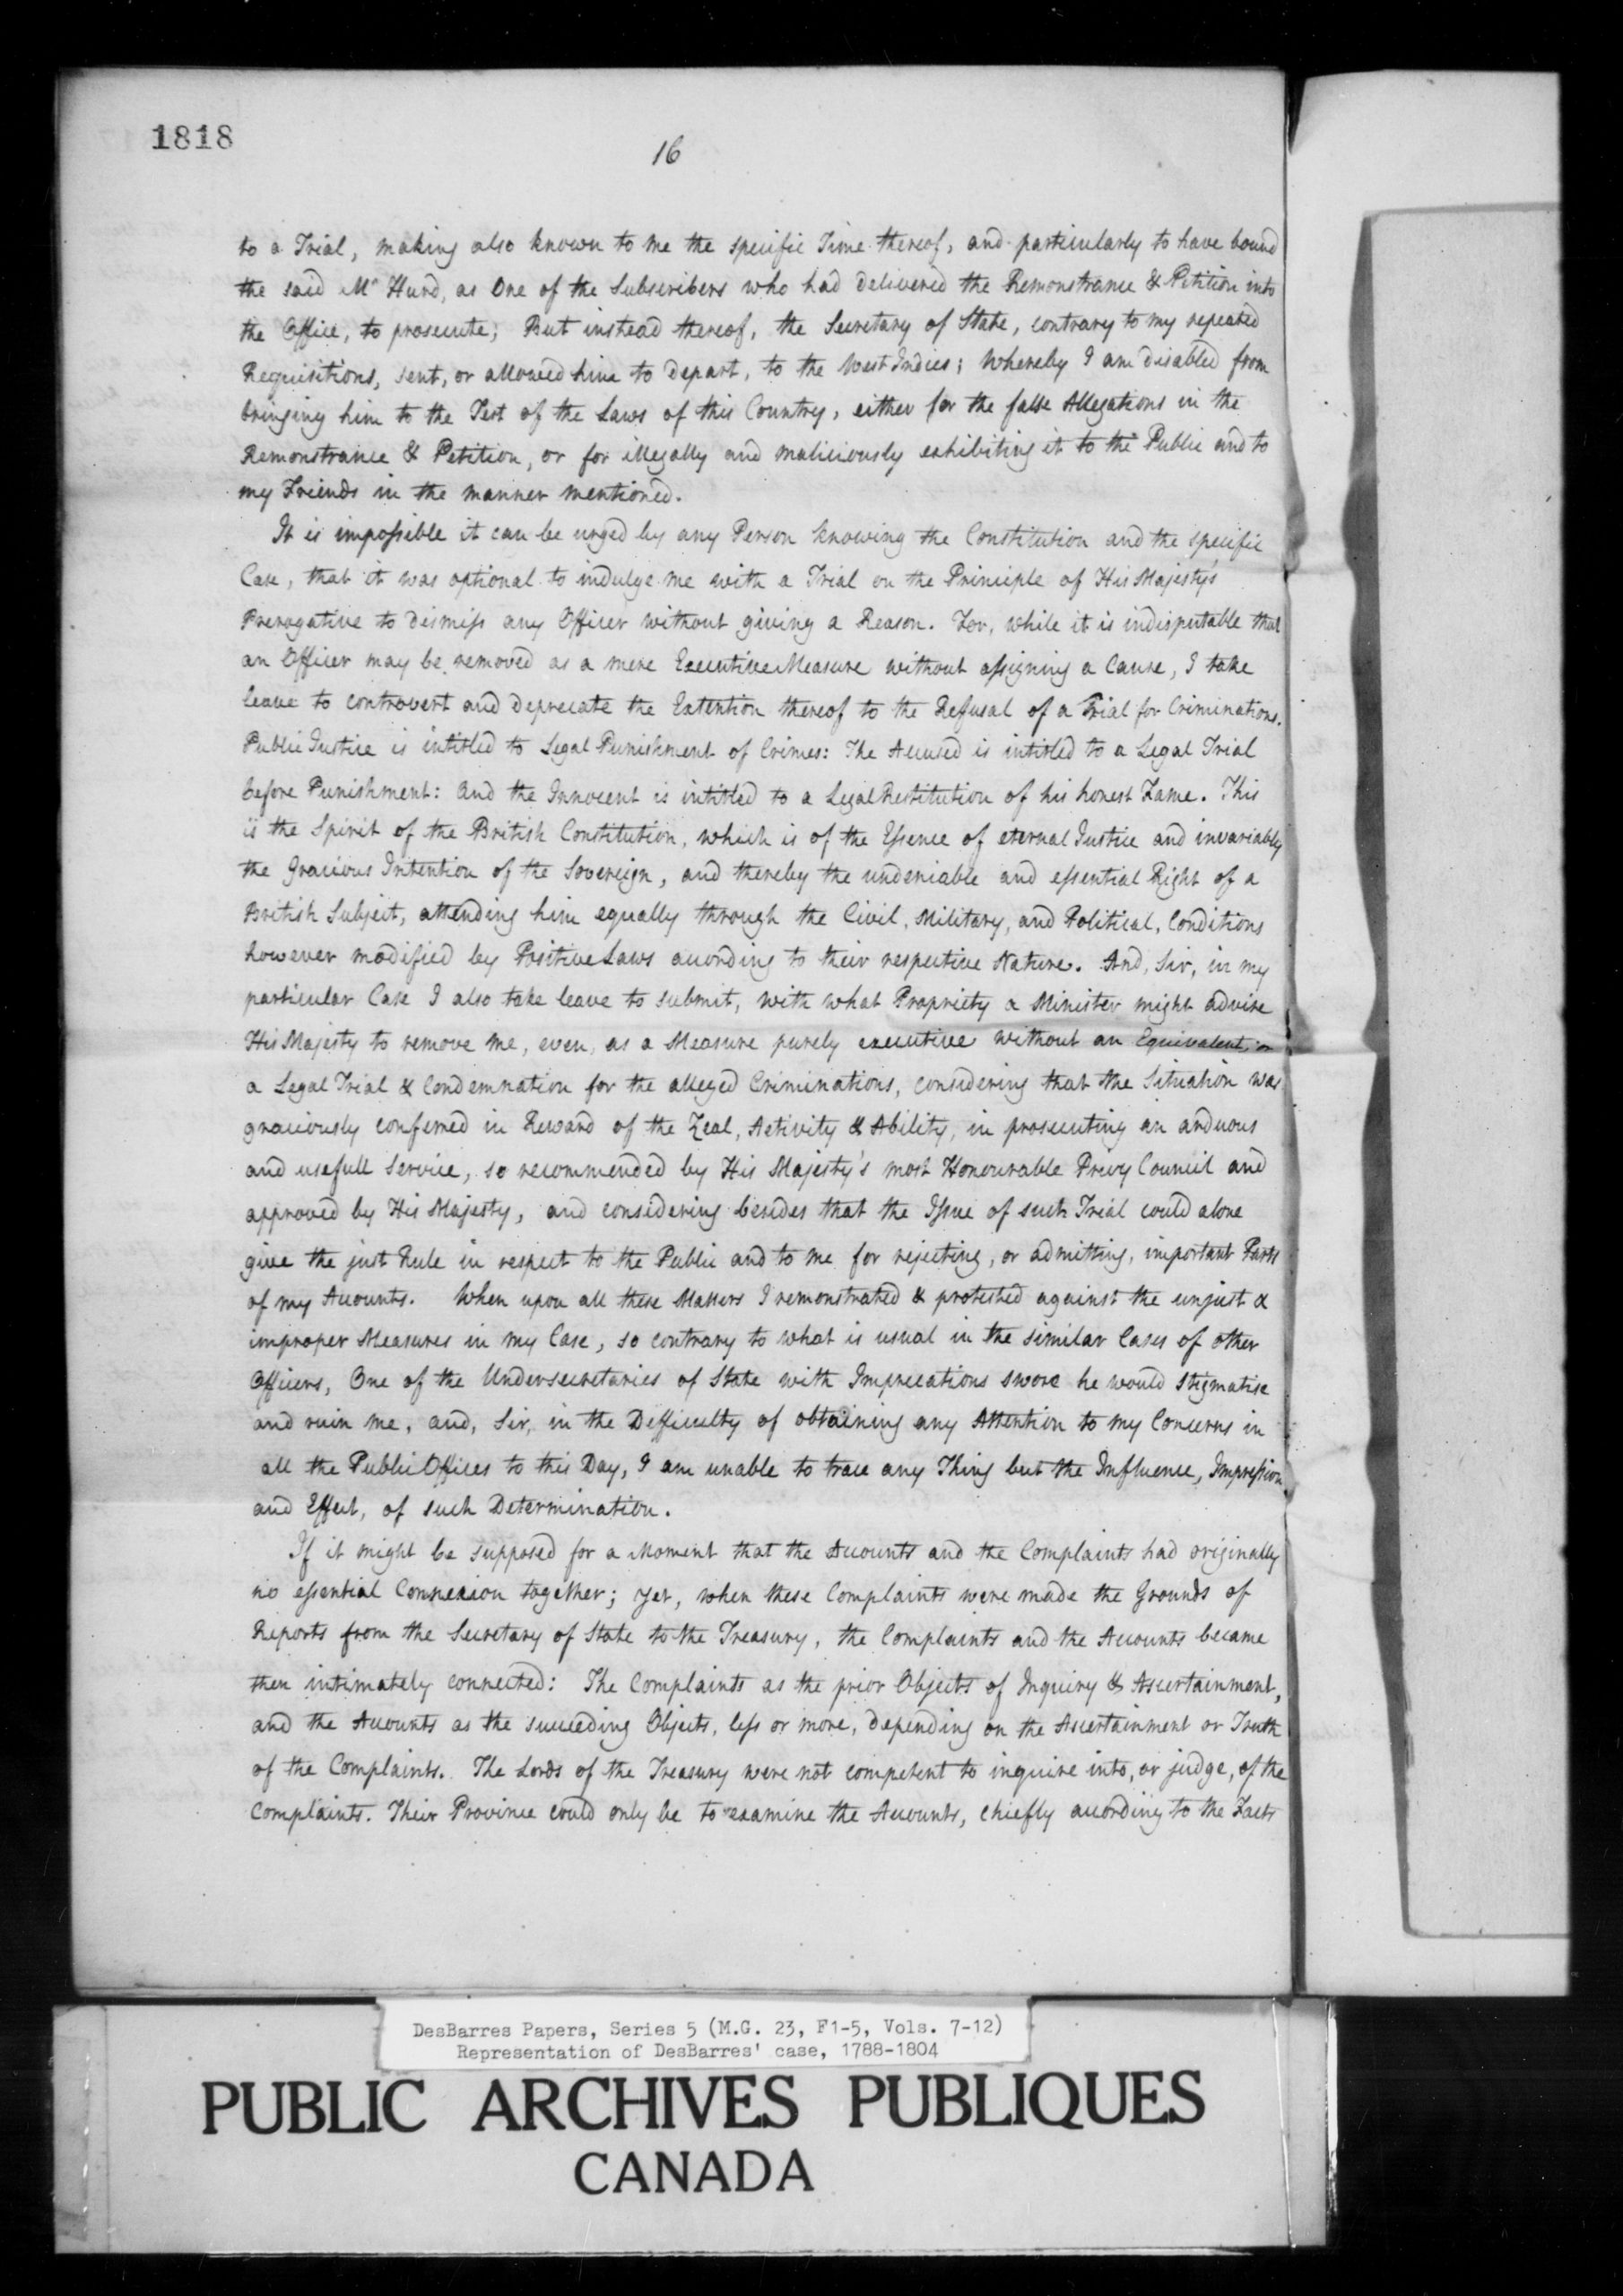 1818
16
to a Trial, making also known to me the specific Time thereof, and particularly to have bound
the said Mr Hurd, as One of the Subscribers who had delivered the Remonstrance & Petition into
the Office, to prosecute; But instead thereof, the Secretary of State, contrary to my repeated
Requisitions, sent, or allowed him to depart, to the West Indies; Whereby I am disabled from
bringing him to the Test of the Laws of this Country, either for the false Allegations in the
Remonstrance & Petition, or for illegally and maliciously exhibiting it to the Public and to
my Friends in the manner mentioned.
It is impossible it can be urged by any Person knowing the Constitution and the specific
Case, that it was optional to indulge me with a Trial on the Principle of His Majesty's
Prerogative to dismiss any Officer without giving a Reason. For, while it is indisputable that
an Officer may be removed as a mere Executive Measure without assigning a Cause, I take
leave to controvert and deprecate the Extention thereof to the Refusal of a Trial for Criminations.
Public Justice is intitled to Legal Punishment of Crimes: The Accused is intitled to a Legal Trial
before Punishment: and the Innocent is intitled to a Legal Restitution of his honest Fame. This
is the Spirit of the British Constitution, which is of the Essence of eternal Justice and invariably
the Gracious Intention of the Sovereign, and thereby the undeniable and essential Right of a
British Subject, attending him equally through the Civil, Military, and Political, Conditions
however modified by Positive Laws according to their respective Nature. And, Sir, in my
particular Case I also take leave to submit, with what Propriety a Minister might advise
His Majesty to remove me, even, as a Measure purely executive without an Equivalent, or
a Legal Trial & Condemnation for the alleged Criminations, considering that the Situation was
graciously conferred in Reward of the Zeal, Activity & Ability, in prosecuting an arduous
and usefull Service, so recommended by His Majesty's most Honourable Privy Council and
approved by His Majesty, and considering besides that the Issue of such Trial could alone
give the just Rule in respect to the Public and to me for rejecting, or admitting, important Parts
of my Accounts. When upon all these Matters I remonstrated & protested against the unjust &
improper Measures in my Case, so contrary to what is usual in the similar Cases of other
Officers, One of the Undersecretaries of State with Imprecations swore he would stigmatise
and ruin me, and, Sir, in the Difficulty of obtaining any Attention to my Concerns in
all the Public Offices to this Day, I am unable to trace any Thing but the Influence, Impression,
and Effect, of such Determination.
If it might be supposed for a Moment that the Accounts and the Complaints had originally
no essential Connexion together; yet, when these Complaints were made the Grounds of
Reports from the Secretary of State to the Treasury, the Complaints and the Accounts became
then intimately connected: The Complaints as the prior Objects of Inquiry & Ascertainment,
and the Accounts as the succeeding Objects, less or more, depending on the Ascertainment or Truth
of the Complaints. The Lords of the Treasury were not competent to inquire into, or judge, of the
Complaints. Their Province could only be to examine the Accounts, chiefly according to the Facts
DesBarres Papers, Series 5 (M.G. 23, F1-5, Vols. 7-12)
Representation of DesBarres' case, 1788-1804
PUBLIC ARCHIVES PUBLIQUES
CANADA